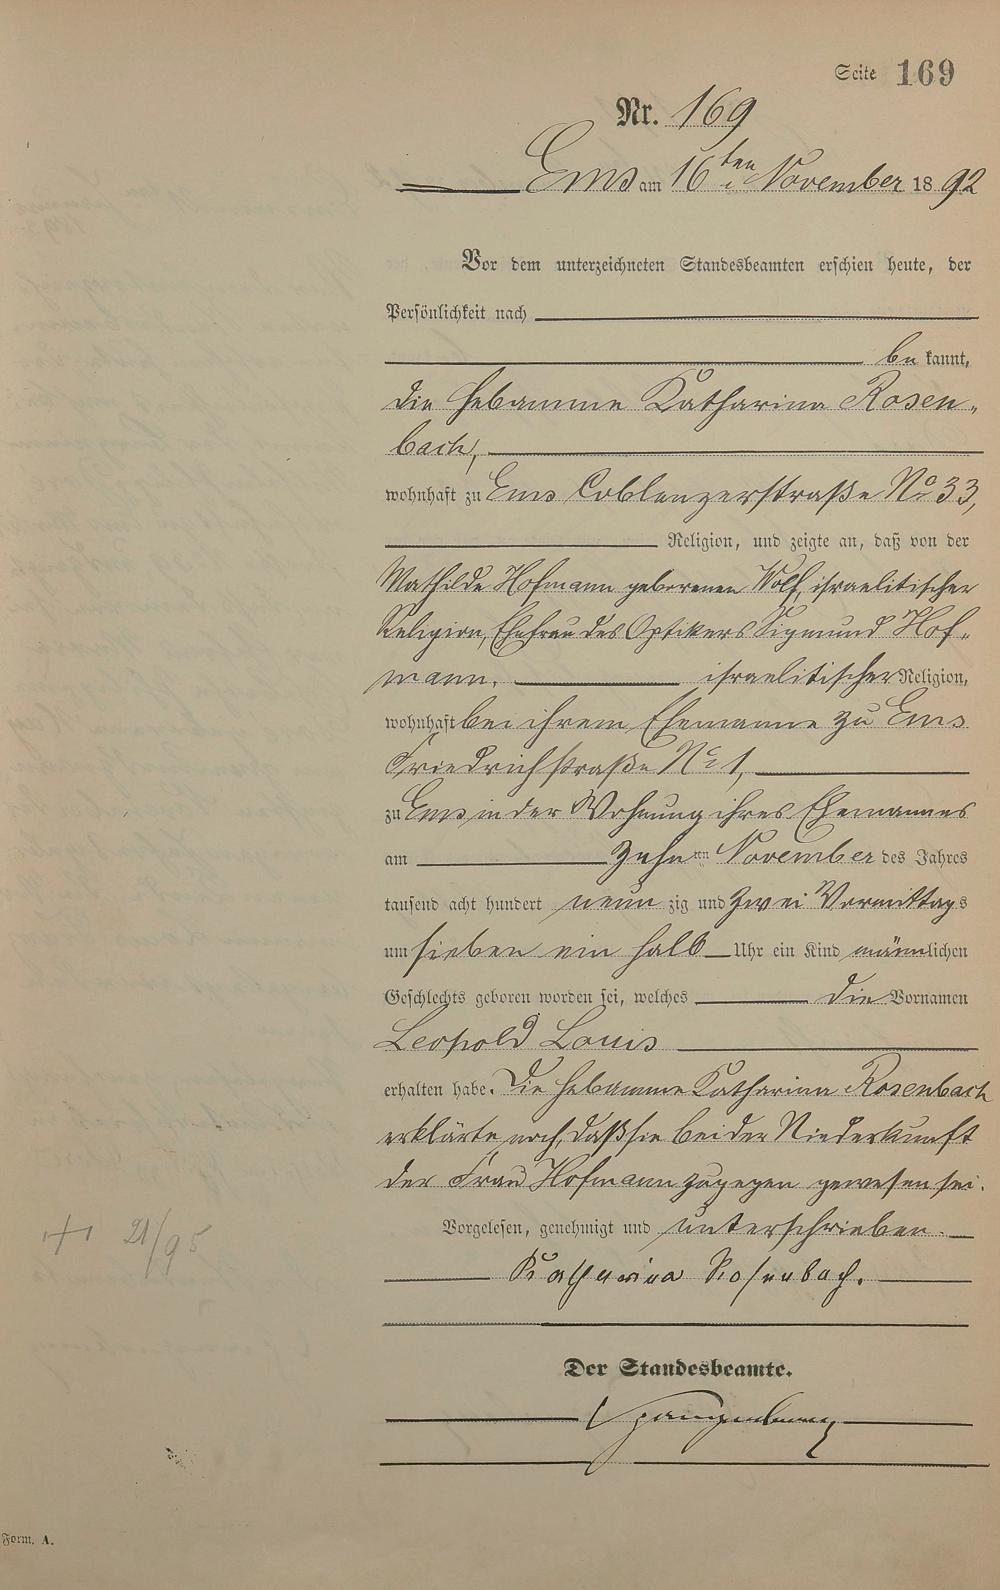 Seite 169
Nr. 169
Ems am 16ten November 1892
Vor dem unterzeichneten Standesbeamten erschien heute, der
Persönlichkeit nach
be kannt,
die Hebamme Katharina Rosen-
bach,
wohnhaft zu Ems Coblenzerstraße No 33,
Religion, und zeigte an, daß von der
Mathilde Hofmann geborenen Wolf, israelitischer
Religion, Ehefrau des Optikers Sigmund Hof-
mann, israelitischer Religion,
wohnhaft bei ihrem Ehemanne zu Ems
Friedrichstraße No 1,
zu Ems in der Wohnung ihres Ehemannes
am zehnten November des Jahres
tausend acht hundert neun zig und zwei Vormittags
um sieben ein halb Uhr ein Kind männlichen
Geschlechts geboren worden sei, welches die Vornamen
Leopold Louis
erhalten habe. Die Hebamme Katharina Rosenbach
erklärte noch, daß sie bei der Niederkunft
der Frau Hofmann zugegen gewesen sei.
Vorgelesen, genehmigt und unterschrieben.
+ 21/95
Katharina Rosenbach.
Der Standesbeamte.
Spangenberg
Form. A.